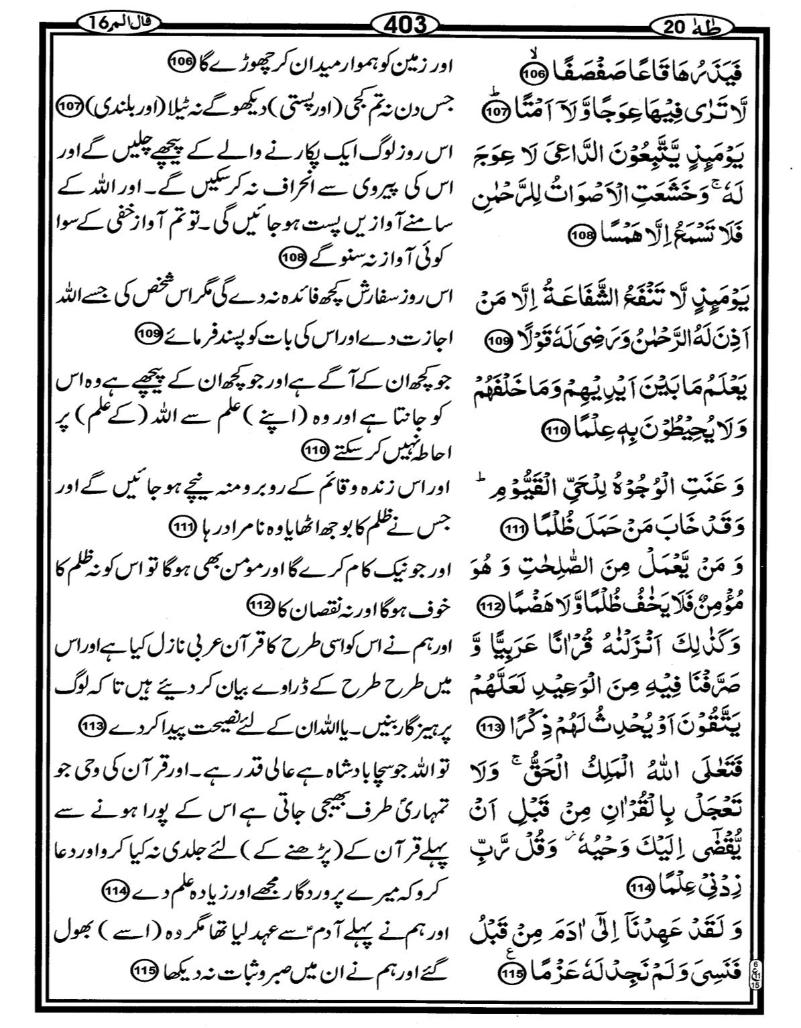 طٰهٰ 20
403
قال الم 16
فَيَذَرُهَا قَاعًا صَفْصَفًا ۙ 106
لَّا تَرٰى فِيْهَا عِوَجًا وَّلَآ اَمْتًا ؕ 107
يَوْمَىِٕذٍ يَّتَّبِعُوْنَ الدَّاعِيَ لَا عِوَجَ
لَهٗ ۚ وَخَشَعَتِ الْاَصْوَاتُ لِلرَّحْمٰنِ
فَلَا تَسْمَعُ اِلَّا هَمْسًا 108
يَوْمَىِٕذٍ لَّا تَنْفَعُ الشَّفَاعَةُ اِلَّا مَنْ
اَذِنَ لَهُ الرَّحْمٰنُ وَرَضِيَ لَهٗ قَوْلًا 109
يَعْلَمُ مَا بَيْنَ اَيْدِيْهِمْ وَمَا خَلْفَهُمْ
وَلَا يُحِيْطُوْنَ بِهٖ عِلْمًا 110
وَ عَنَتِ الْوُجُوْهُ لِلْحَيِّ الْقَيُّوْمِ ؕ
وَقَدْ خَابَ مَنْ حَمَلَ ظُلْمًا 111
وَ مَنْ يَّعْمَلْ مِنَ الصّٰلِحٰتِ وَ هُوَ
مُؤْمِنٌ فَلَا يَخٰفُ ظُلْمًا وَّلَا هَضْمًا 112
وَكَذٰلِكَ اَنْزَلْنٰهُ قُرْاٰنًا عَرَبِيًّا وَّ
صَرَّفْنَا فِيْهِ مِنَ الْوَعِيْدِ لَعَلَّهُمْ
يَتَّقُوْنَ اَوْ يُحْدِثُ لَهُمْ ذِكْرًا 113
فَتَعٰلَى اللّٰهُ الْمَلِكُ الْحَقُّ ۚ وَلَا
تَعْجَلْ بِالْقُرْاٰنِ مِنْ قَبْلِ اَنْ
يُّقْضٰٓى اِلَيْكَ وَحْيُهٗ ؗ وَقُلْ رَّبِّ
زِدْنِيْ عِلْمًا 114
وَ لَقَدْ عَهِدْنَآ اِلٰٓى اٰدَمَ مِنْ قَبْلُ
فَنَسِيَ وَلَمْ نَجِدْ لَهٗ عَزْمًا 115
اور زمین کو ہموار میدان کر چھوڑے گا 106
جس دن نہ تم کجی (اور پستی) دیکھو گے نہ ٹیلا (اور بلندی) 107
اس روز لوگ ایک پکارنے والے کے پیچھے چلیں گے اور
اس کی پیروی سے انحراف نہ کر سکیں گے۔ اور اللہ کے
سامنے آوازیں پست ہو جائیں گی۔ تو تم آواز خفی کے سوا
کوئی آواز نہ سنو گے 108
اس روز سفارش کچھ فائدہ نہ دے گی مگر اس شخص کی جسے اللہ
اجازت دے اور اس کی بات کو پسند فرمائے 109
جو کچھ ان کے آگے ہے اور جو کچھ ان کے پیچھے ہے وہ اس
کو جانتا ہے اور وہ (اپنے) علم سے اللہ (کے علم) پر
احاطہ نہیں کر سکتے 110
اور اس زندہ و قائم کے روبرو منہ نیچے ہو جائیں گے اور
جس نے ظلم کا بوجھ اٹھایا وہ نامراد رہا 111
اور جو نیک کام کرے گا اور مومن بھی ہوگا تو اس کو نہ ظلم کا
خوف ہوگا اور نہ نقصان کا 112
اور ہم نے اس کو اسی طرح کا قرآن عربی نازل کیا ہے اور اس
میں طرح طرح کے ڈراوے بیان کر دیئے ہیں تاکہ لوگ
پرہیزگار بنیں۔ یا اللہ ان کے لئے نصیحت پیدا کر دے 113
تو اللہ جو سچا بادشاہ ہے عالی قدر ہے۔ اور قرآن کی وحی جو
تمہاری طرف بھیجی جاتی ہے اس کے پورا ہونے سے
پہلے قرآن کے (پڑھنے کے) لئے جلدی نہ کیا کرو اور دعا
کرو کہ میرے پروردگار مجھے اور زیادہ علم دے 114
اور ہم نے پہلے آدمؑ سے عہد لیا تھا مگر وہ (اسے) بھول
گئے اور ہم نے ان میں صبر و ثبات نہ دیکھا 115